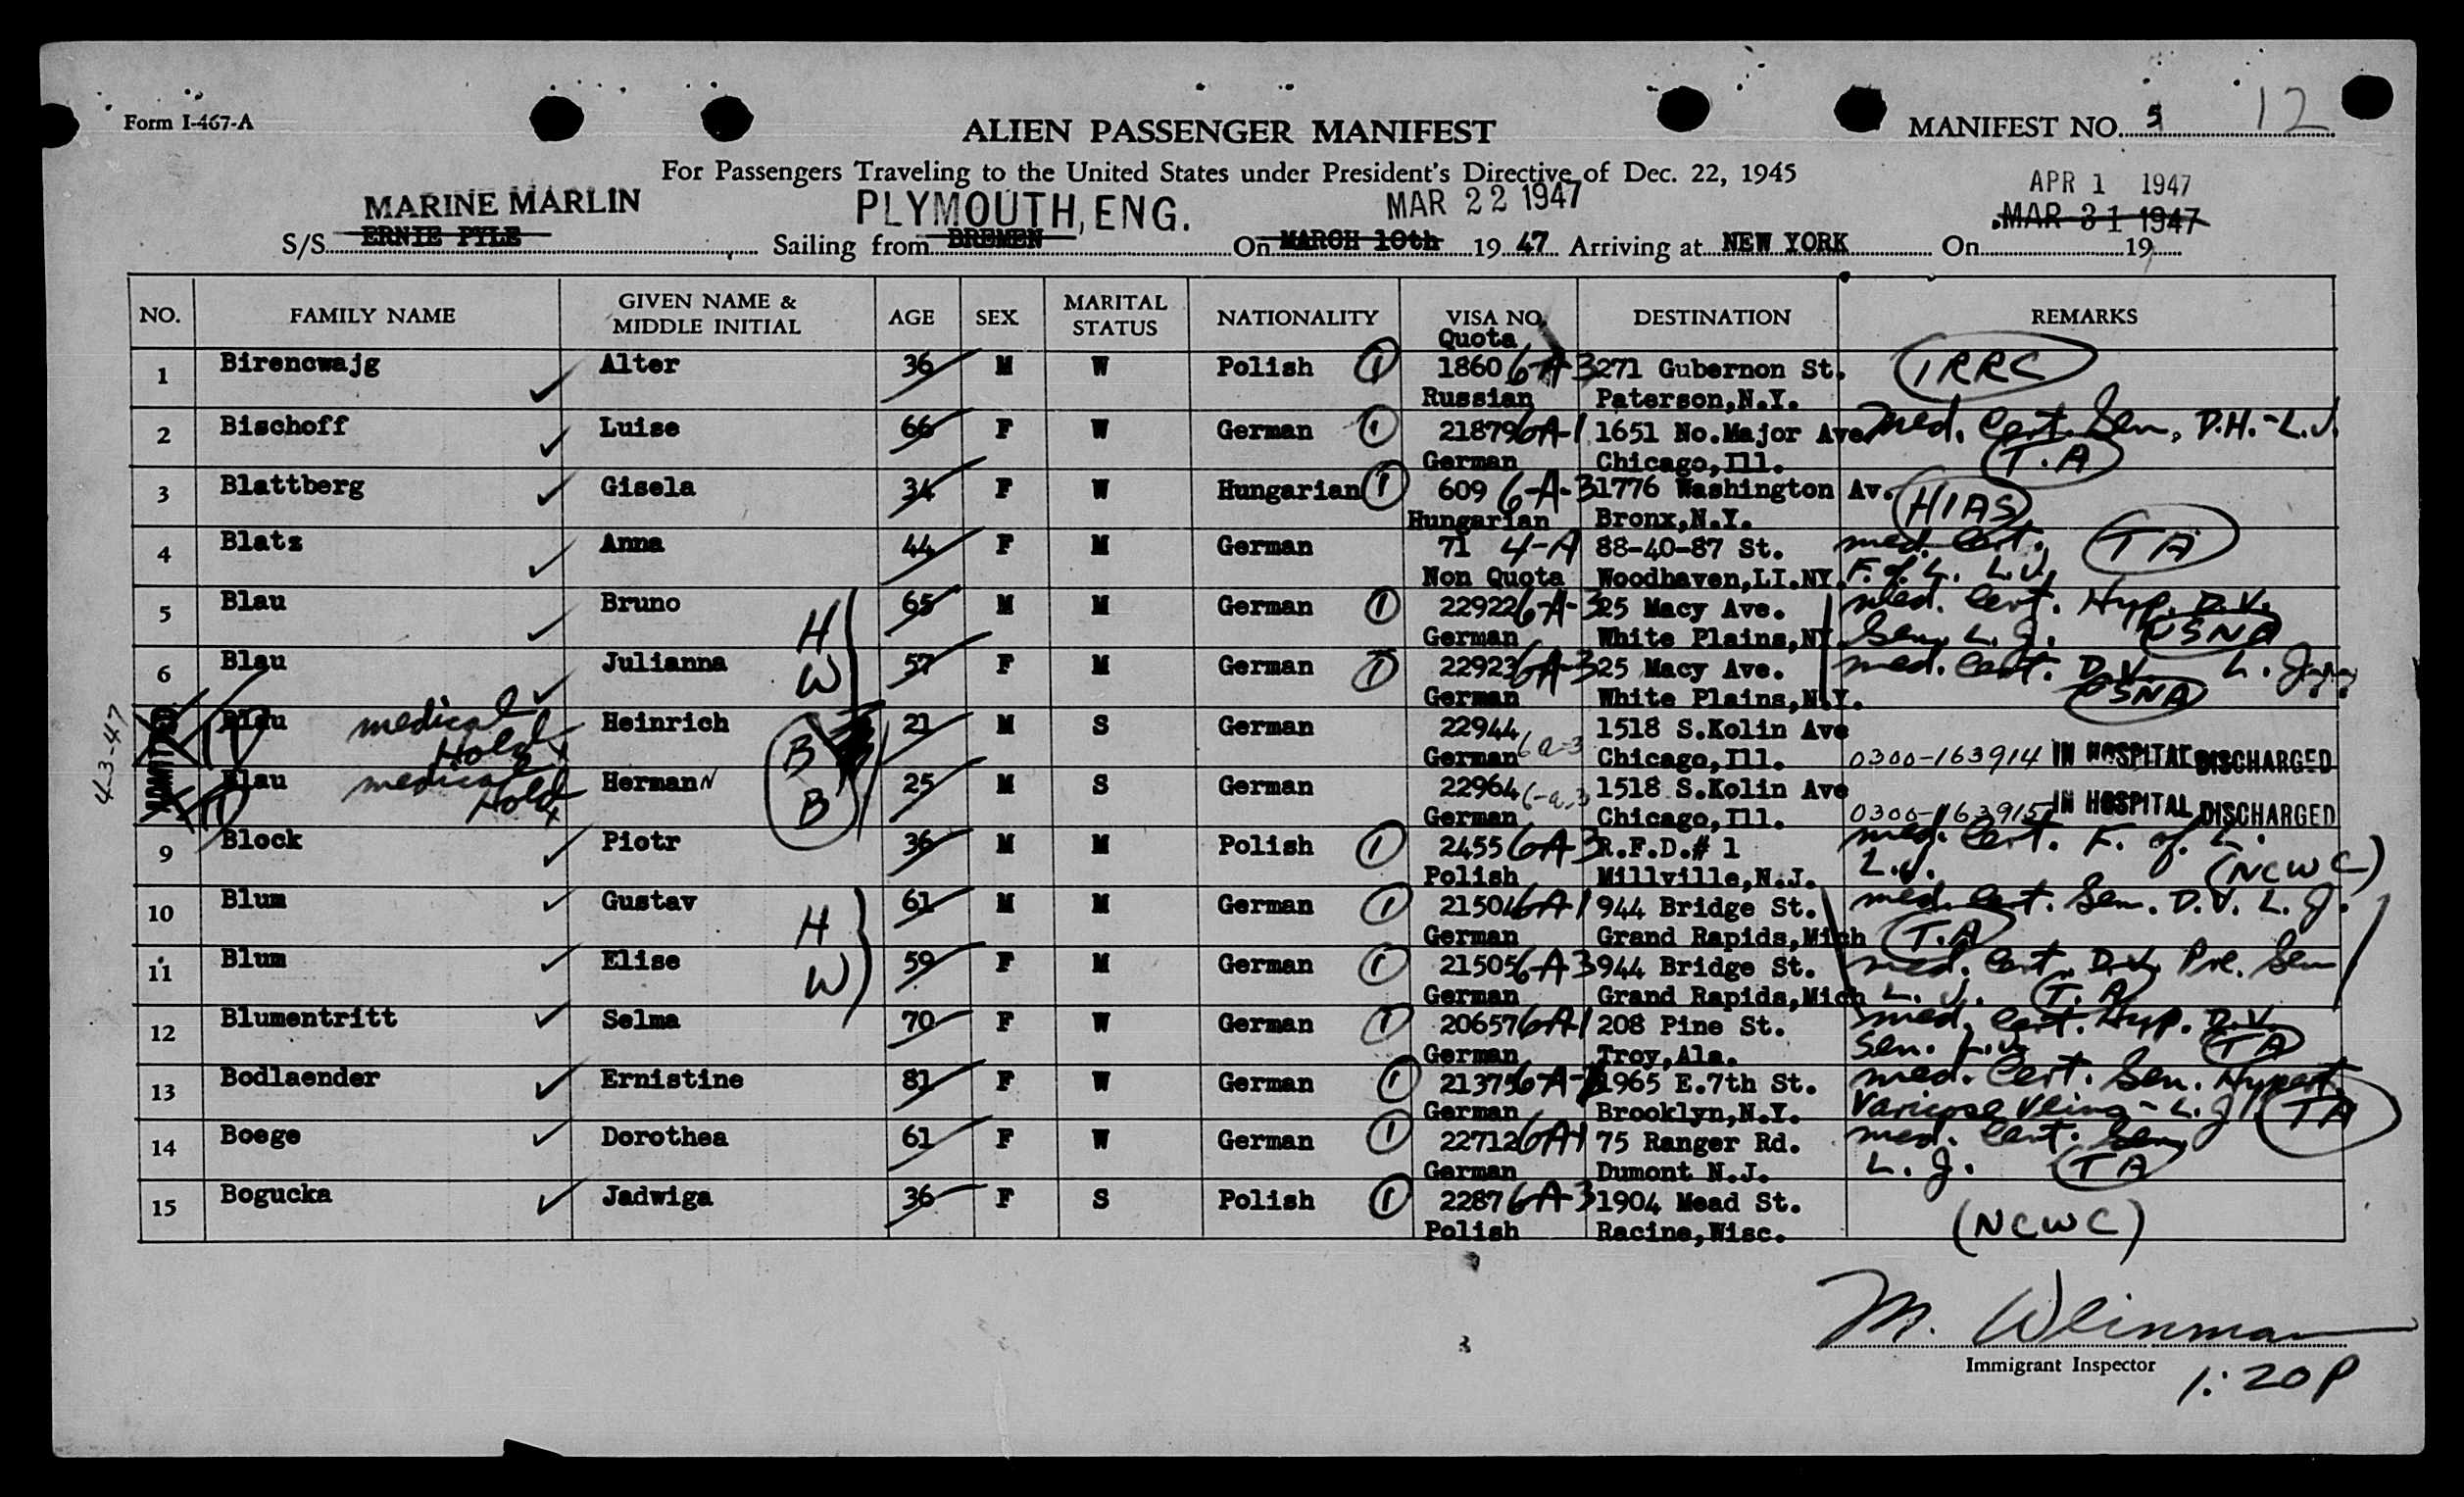 Form I-467-A
ALIEN PASSENGER MANIFEST
MANIFEST NO. 5 12
For Passengers Traveling to the United States under President's Directive of Dec. 22, 1945
MARINE MARLIN PLYMOUTH, ENG. MAR 22 1947 APR 1 1947
MAR 31 1947
S/S ERNIE PYLE Sailing from BREMEN On MARCH 10th 19 47 Arriving at NEW YORK On 19
NO. FAMILY NAME GIVEN NAME & MIDDLE INITIAL AGE SEX MARITAL STATUS NATIONALITY VISA NO. DESTINATION REMARKS
Quota
1 Birencwajg Alter 36 M W Polish 1 1860 6A-3 271 Gubernon St. IRRC
Russian Paterson,N.Y.
2 Bischoff Luise 66 F W German 1 21879 6A-1 1651 No.Major Ave Med. Cert. Sen, D.H.-L.J.
German Chicago,Ill. T.A
3 Blattberg Gisela 34 F W Hungarian 1 609 6-A-3 1776 Washington Av. HIAS
Hungarian Bronx,N.Y.
4 Blatz Anna 44 F M German 71 4-A 88-40-87 St. med. Cert. TA
Non Quota Woodhaven,LI.NY. F. of L. L.J.
5 Blau Bruno H 65 M M German 1 22922 6-A-3 25 Macy Ave. Med. Cert. Hyp. D.V.
German White Plains,NY. Sen, L. J. USNA
6 Blau Julianna W 57 F M German 1 22923 6A-3 25 Macy Ave. med. Cert. D.V. L. J
German White Plains,N.Y. USNA
4-3-47 ADMITTED Blau medical Hold x Heinrich B 21 M S German 22944 1518 S.Kolin Ave
German 6a-3 Chicago,Ill. 0300-163914 IN HOSPITAL DISCHARGED
Blau medical Hold x Herman N B 25 M S German 22964 6-a-3 1518 S.Kolin Ave
German Chicago,Ill. 0300-163915 IN HOSPITAL DISCHARGED
9 Block Piotr 36 M M Polish 1 2455 6A-3 R.F.D.# 1 med. Cert. F. of L.
Polish Millville,N.J. L.J. (NCWC)
10 Blum Gustav H 61 M M German 1 21504 6A-1 944 Bridge St. med. Cert. Sen. D.V. L. J.
German Grand Rapids,Mich T.A
11 Blum Elise W 59 F M German 1 21505 6-A-3 944 Bridge St. med. Cert. D.V. Pre. Sen
German Grand Rapids,Mich L. J. T.A
12 Blumentritt Selma 70 F W German 1 20657 6A-1 208 Pine St. med. Cert. Hyp. D.V.
German Troy,Ala. Sen. L.J. TA
13 Bodlaender Ernistine 81 F W German 1 21375 6-A- 1965 E.7th St. med. Cert. Sen. Hypert.
German Brooklyn,N.Y. Varicose Veins - L. J TA
14 Boege Dorothea 61 F W German 1 22712 6A-1 75 Ranger Rd. med. Cert. Sen
German Dumont N.J. L. J. TA
15 Bogucka Jadwiga 36 F S Polish 1 2287 6A-3 1904 Mead St.
Polish Racine,Wisc. (NCWC)
M. Weinman
Immigrant Inspector
1:20P